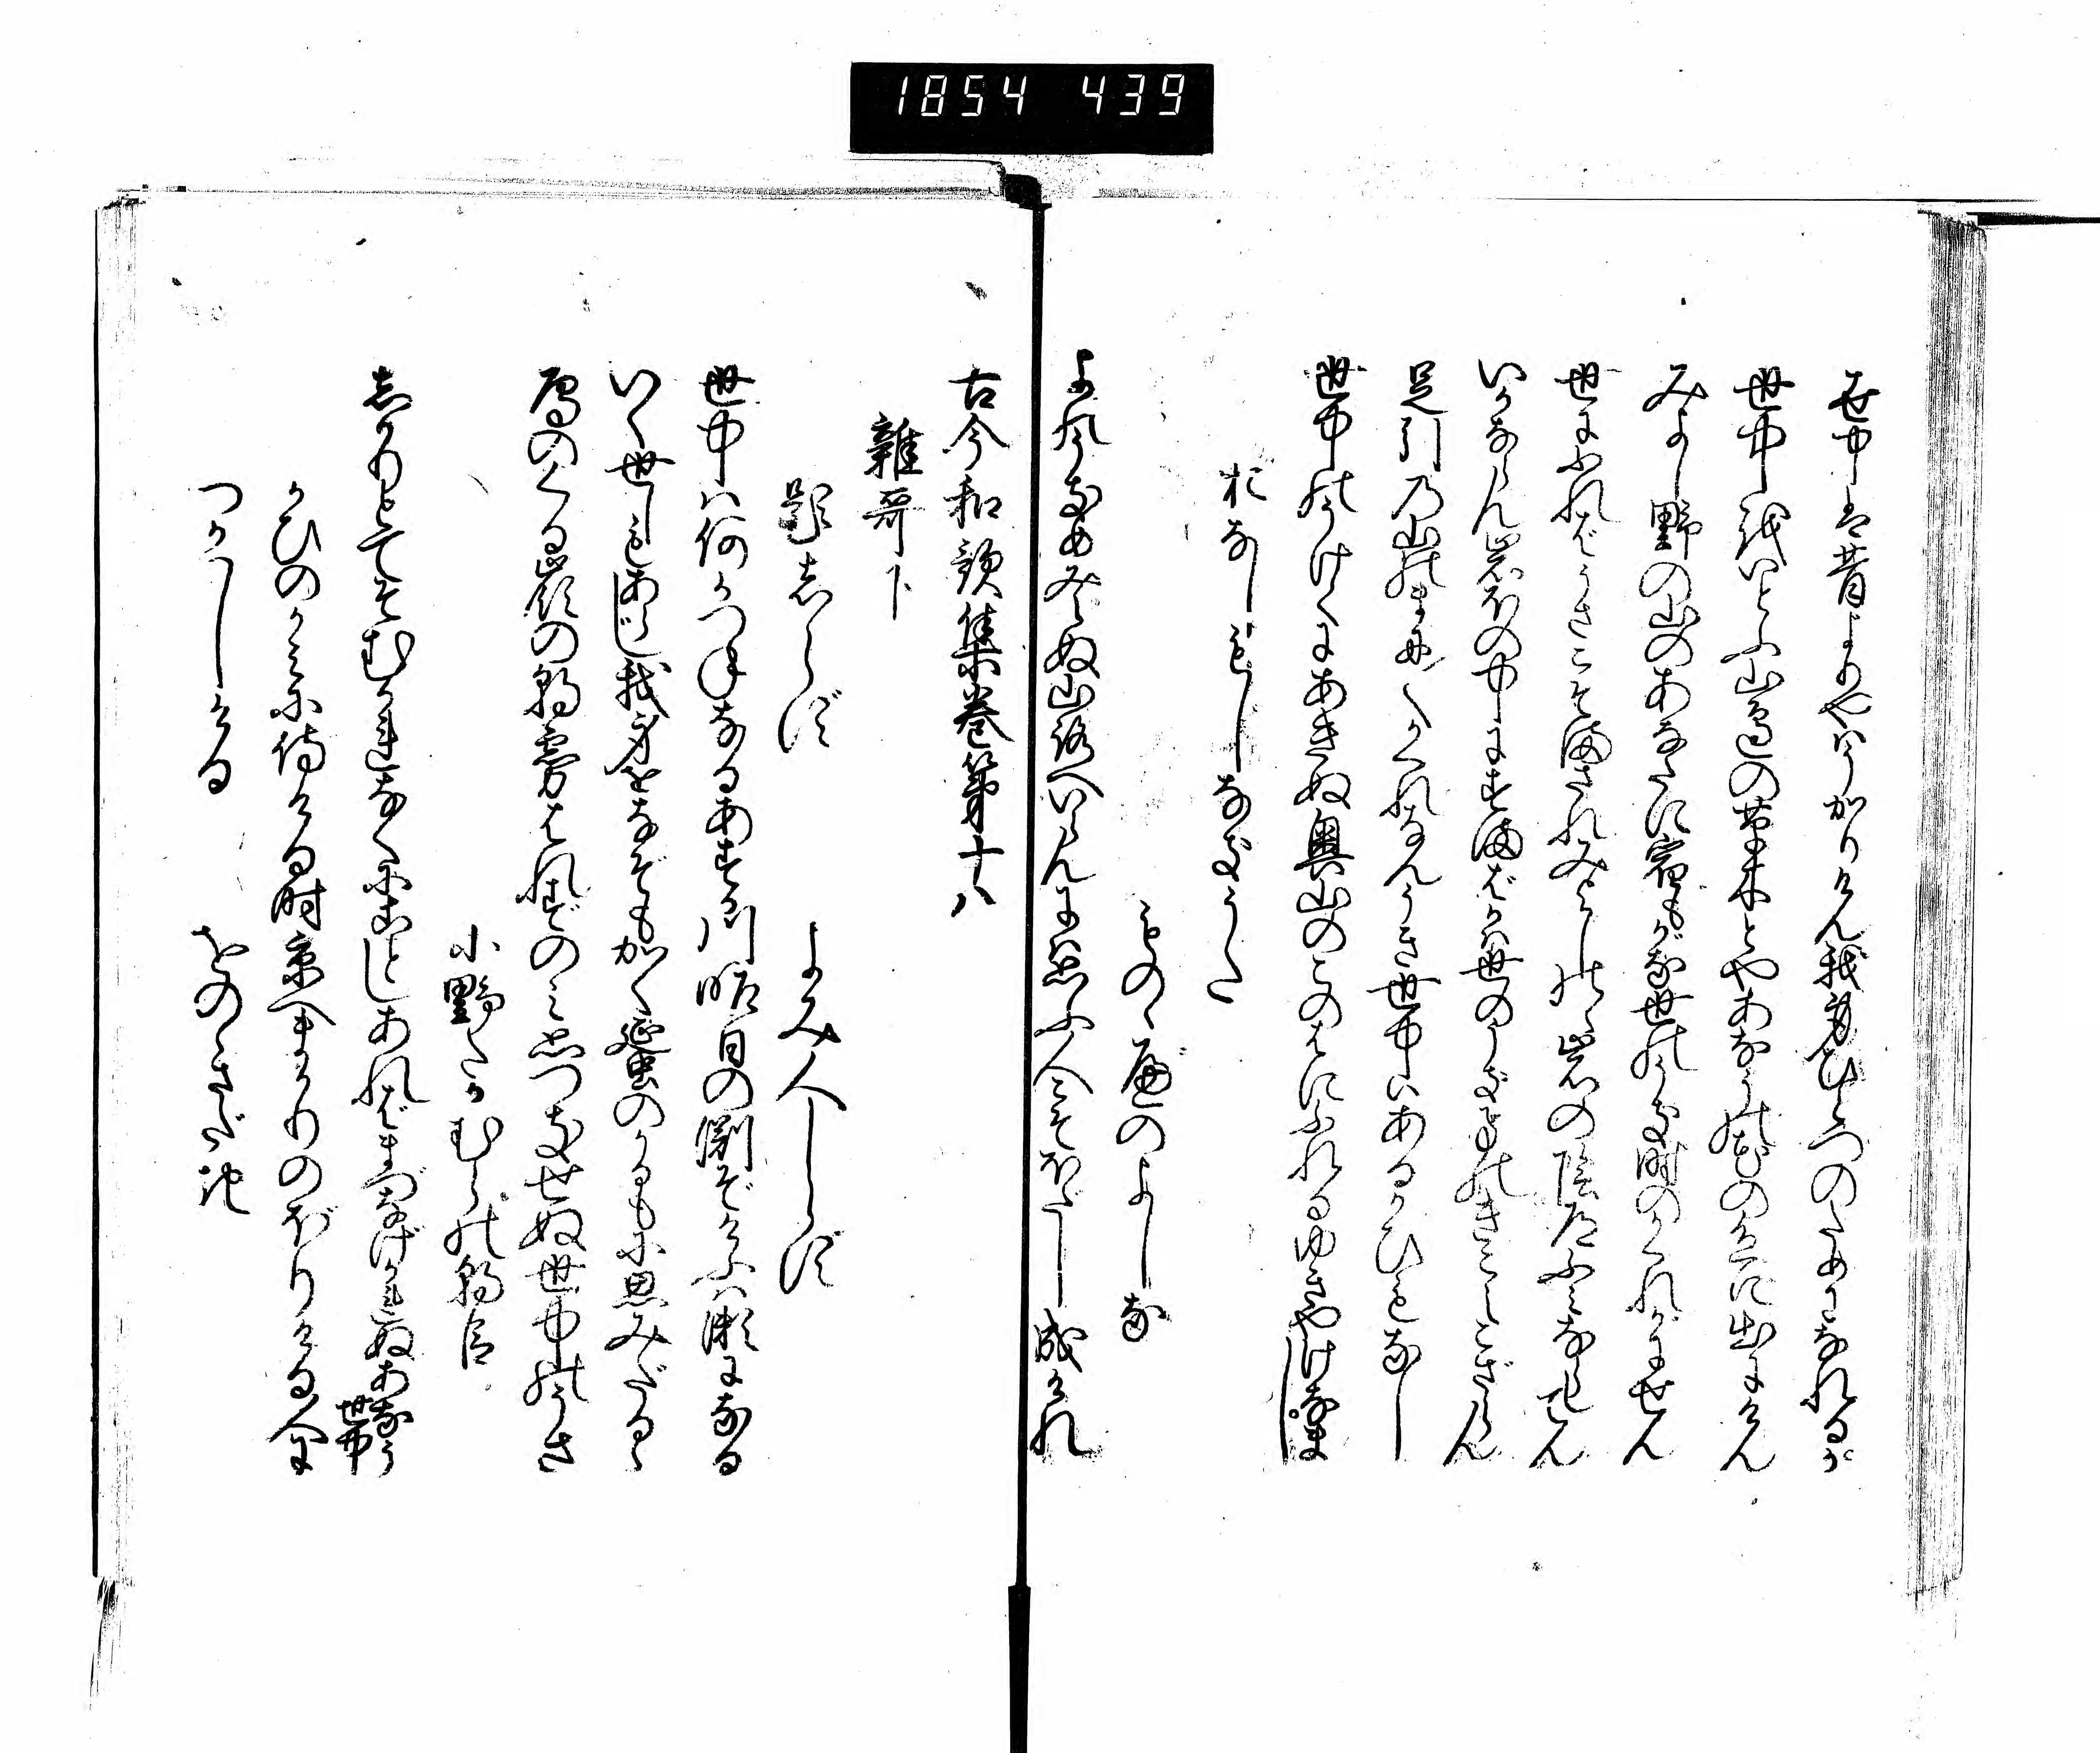 1854 439
世中は昔よりやはうかりけん我身ひとつのためになれるか
世中をいとふ山邊の草木とやあなうの花の色に出にけん
みよし野の山のあなたに宿もがな世のうき時のかくれがにせん
世にふればうさこそまされみよしのゝ岩の陰道ふみならしてん
いかならん岩ほの中にすまばかは世のうき事のきこえこざらん
足引の山のまに〳〵かくれなんうき世中はあるかひもなし
世中のうけくにあきぬ奥山のこのはにふれるゆきやけなまし
おなしもしなきうた
ものゝべのよしな
よのうきめみえぬ山路へいらんには思ふ人こそほだし成けれ
古今和歌集巻第十八
雑哥下
題しらず
よみ人しらず
世中は何かつねなるあすか川昨日の渕ぞけふは瀬になる
いく世しもあらじ我身をなぞもかく蜑のかるもに思みだるゝ
鴈のくる嶺の朝霧はれずのみ思つきせぬ世中のうさ
小野たかむらの朝臣
しかりとてそむかれなくに事しあればまづなげかれぬあなう世中
かひのかみに侍ける時京へまかりのぼりける人に
つかはしける
をのゝさだき